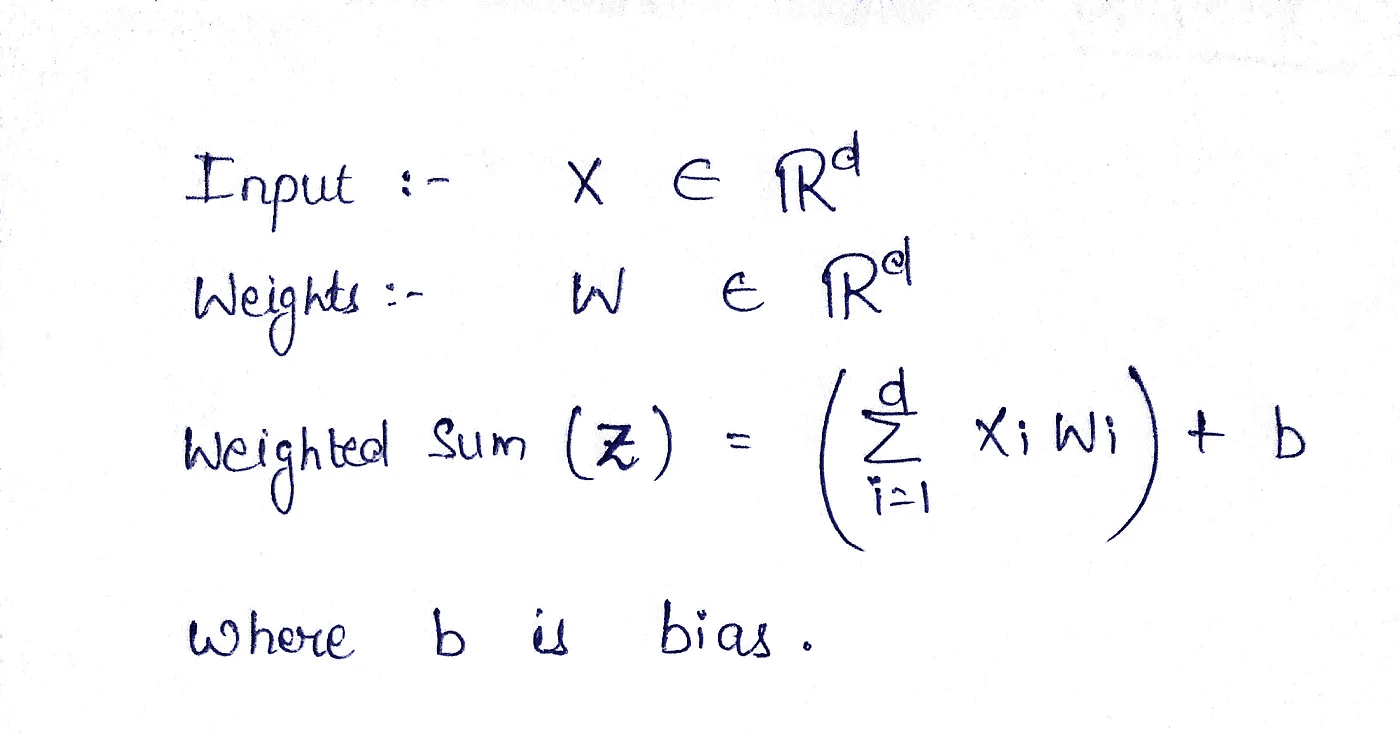 Input :- X ∈ ℝᵈ
Weights :- W ∈ ℝᵈ
Weighted Sum (Z) = (∑ᵈᵢ₌₁ Xᵢ Wᵢ) + b
where b is bias.